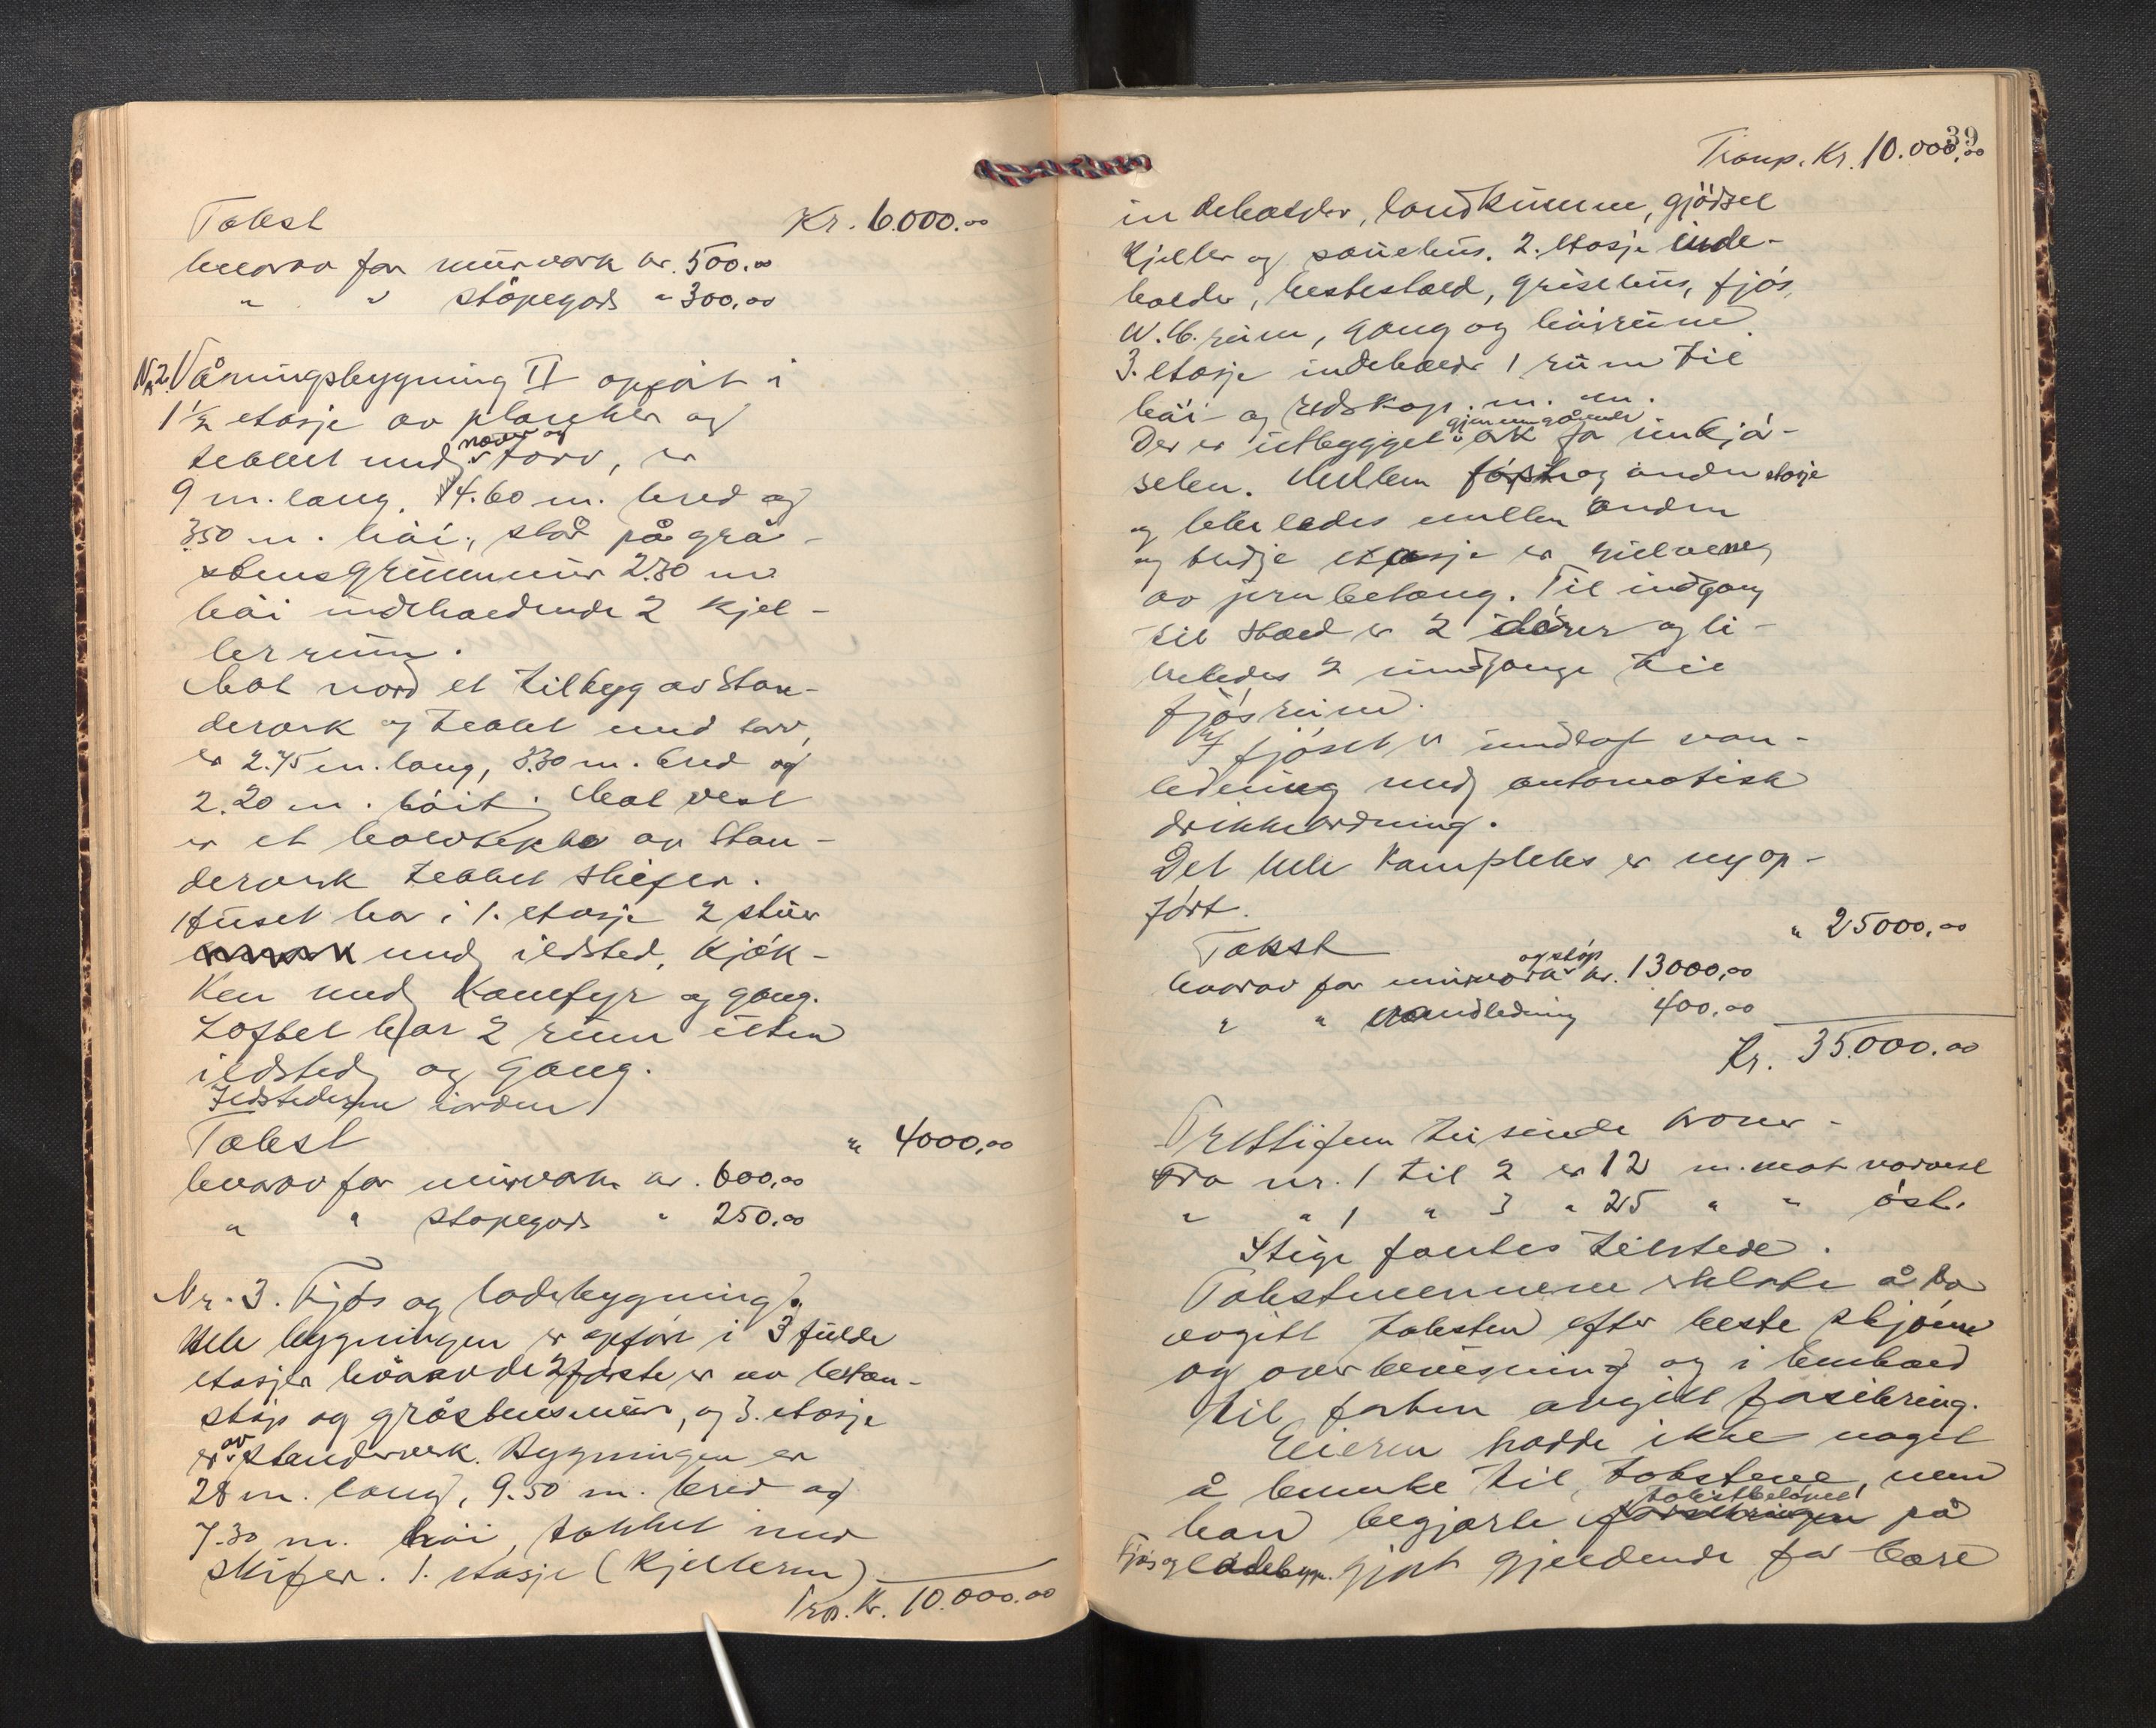 Takst Kr. 6.000.00
hvorav for murverk kr. 500.00
" " stöpegods " 300.00
Nr 2. Våningsbygning II opfört i
1½ etasje av plancker og
tekket med næver og torv, er
9 m. lang, 4.60 m. bred og
3.50 m. höi, står på grå-
stensgrunnmur 2.30 m
höi indeholdende 2 kjel-
lerrum.
Mot nord et tilbygg av Stan-
derverk og tekket med torv,
er 2.75 m. lang, 3.30 m. bred og
2.20 m. höit. Mot vest
er et halvtekke av Stan-
derverk tekket skifer.
Huset har i 1. etasje 2 stuer
med ildsted, kjök-
ken med komfyr og gang.
Loftet har 2 rum uten
ildsted og gang.
Ildstederne i orden
Takst " 4000,00
hvorav for murverk kr. 600,00
" " stöpegods " 250.00
Nr. 3. Fjös og ladebygning.
Hele bygningen er opfört i 3 fulde
etasjer hvorav de 2 förste er av beton-
stöp og gråstensmur, og 3. etasje
er av standerverk. Bygningen er
28 m. lang, 9.50 m. bred og
7.30 m. höi, tekket med
skifer. 1. etasje (kjelleren)
Trp. Kr. 10.000.00
39
Transp. Kr. 10.000,00
indeholder, landkumme, gjödsel
kjeller og sauehus. 2. etasje inde-
holder, hestestald, grisehus, fjös,
W.C. rum, gang og höirum.
3. etasje indeholder 1 rum til
höi og redskap m. m.
Der er utbygget gjennemgående ark for innkjö-
selen. Mellem förste og anden etasje
og likeledes mellem anden
og tredje etasje er hvelving
av jernbetong. Til indgang
til stald er 2 dörer og li-
keledes 2 inndgange til
fjösrum.
I fjöset er inndlagt van-
ledning med automatisk
drikkeordning.
Det hele kompleks er nyop-
fört.
Takst " 25000,00
hvorav for murverk og stöp kr. 13000,00
" " vandledning 400,00
Kr. 35.000.00
Trettifem tusinde kroner -
Fra nr. 1 til 2 er 12 m. mot norvest
" " 1 " 3 " 25 " " öst.
Stige fantes tilstede.
Takstmennene erklærte å ha
avgitt taksten efter beste skjönn
og overbevisning og i henhold
til forhen avgitt forsikring.
Eieren hadde ikke noget
å bemerke til takstene, men
han begjærte forsikringen takstbelöpet på
fjös og ladebygn. gjort gjeldende for bare